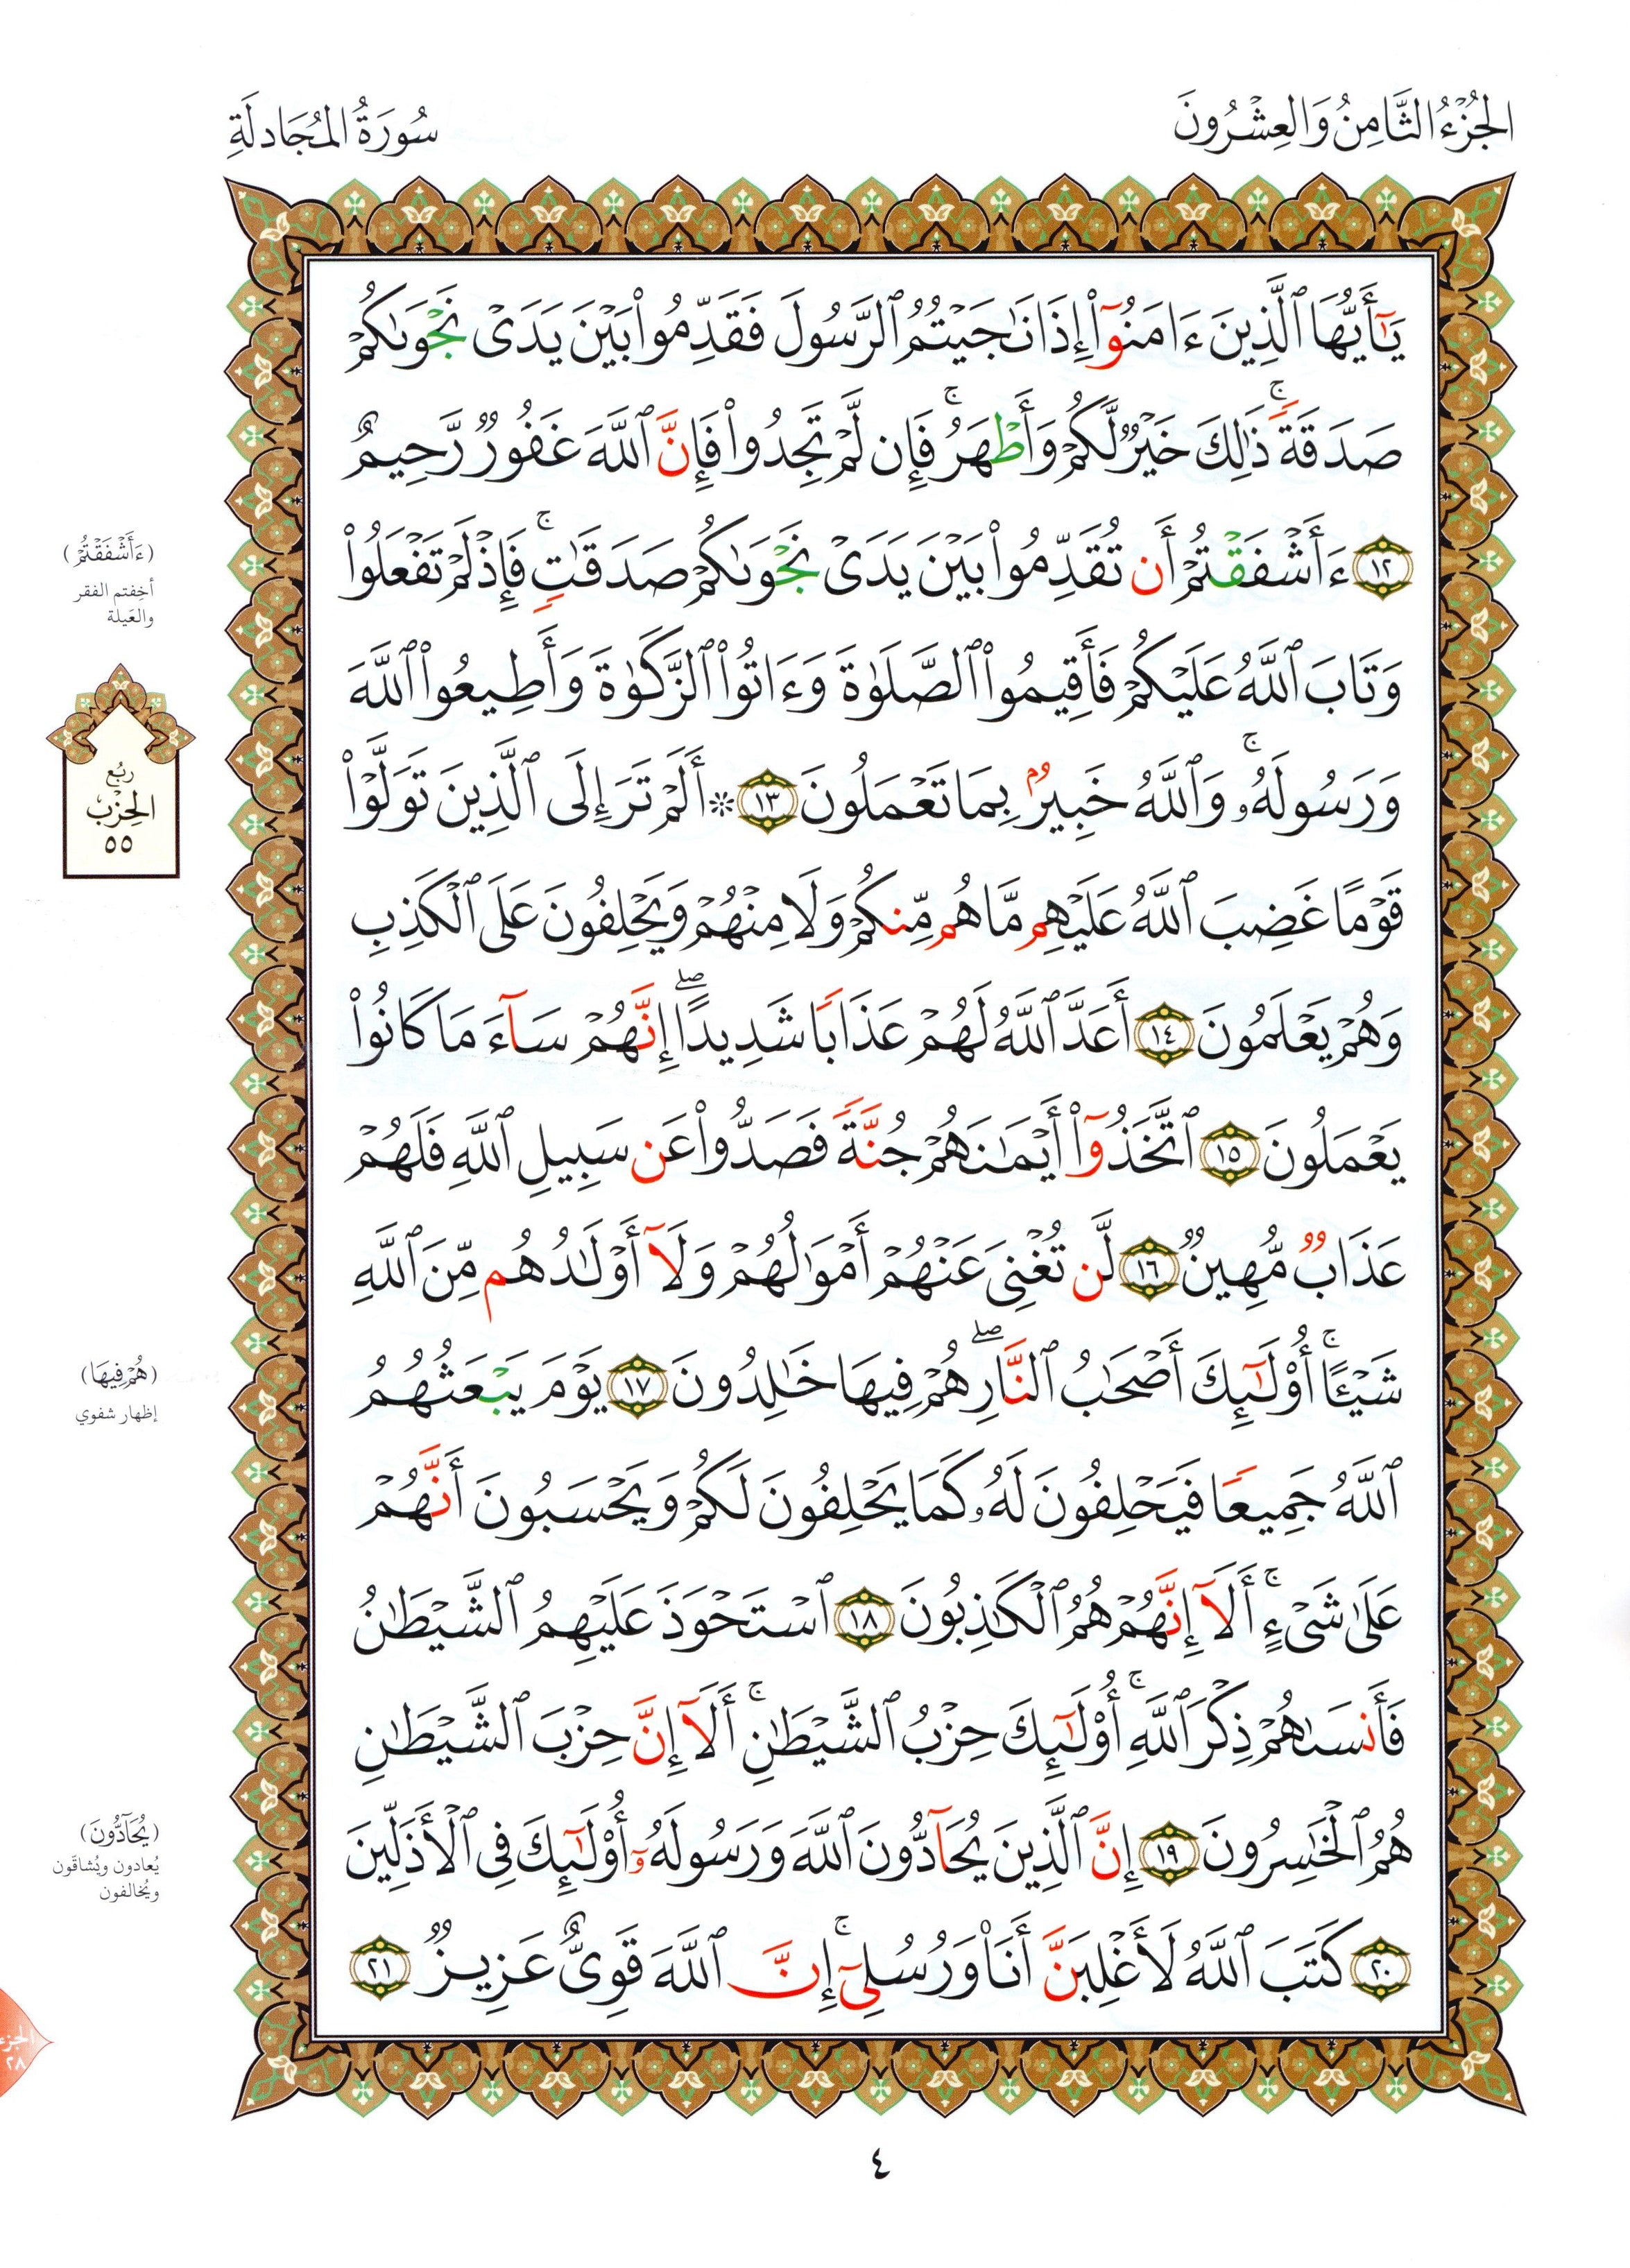 الجُزْءُ الثَّامِنُ وَالعِشْرُونَ
سُورَةُ المُجَادلَةِ
يَـٰٓأَيُّهَا ٱلَّذِينَ ءَامَنُوٓا۟ إِذَا نَـٰجَيْتُمُ ٱلرَّسُولَ فَقَدِّمُوا۟ بَيْنَ يَدَىْ نَجْوَىٰكُمْ
صَدَقَةً ۚ ذَٰلِكَ خَيْرٌ لَّكُمْ وَأَطْهَرُ ۚ فَإِن لَّمْ تَجِدُوا۟ فَإِنَّ ٱللَّهَ غَفُورٌ رَّحِيمٌ
١٢ ءَأَشْفَقْتُمْ أَن تُقَدِّمُوا۟ بَيْنَ يَدَىْ نَجْوَىٰكُمْ صَدَقَـٰتٍ ۚ فَإِذْ لَمْ تَفْعَلُوا۟
وَتَابَ ٱللَّهُ عَلَيْكُمْ فَأَقِيمُوا۟ ٱلصَّلَوٰةَ وَءَاتُوا۟ ٱلزَّكَوٰةَ وَأَطِيعُوا۟ ٱللَّهَ
وَرَسُولَهُۥ ۚ وَٱللَّهُ خَبِيرٌۢ بِمَا تَعْمَلُونَ ١٣ ۞ أَلَمْ تَرَ إِلَى ٱلَّذِينَ تَوَلَّوْا۟
قَوْمًا غَضِبَ ٱللَّهُ عَلَيْهِم مَّا هُم مِّنكُمْ وَلَا مِنْهُمْ وَيَحْلِفُونَ عَلَى ٱلْكَذِبِ
وَهُمْ يَعْلَمُونَ ١٤ أَعَدَّ ٱللَّهُ لَهُمْ عَذَابًا شَدِيدًا ۖ إِنَّهُمْ سَآءَ مَا كَانُوا۟
يَعْمَلُونَ ١٥ ٱتَّخَذُوٓا۟ أَيْمَـٰنَهُمْ جُنَّةً فَصَدُّوا۟ عَن سَبِيلِ ٱللَّهِ فَلَهُمْ
عَذَابٌ مُّهِينٌ ١٦ لَّن تُغْنِىَ عَنْهُمْ أَمْوَٰلُهُمْ وَلَآ أَوْلَـٰدُهُم مِّنَ ٱللَّهِ
شَيْـًٔا ۚ أُو۟لَـٰٓئِكَ أَصْحَـٰبُ ٱلنَّارِ ۖ هُمْ فِيهَا خَـٰلِدُونَ ١٧ يَوْمَ يَبْعَثُهُمُ
ٱللَّهُ جَمِيعًا فَيَحْلِفُونَ لَهُۥ كَمَا يَحْلِفُونَ لَكُمْ وَيَحْسَبُونَ أَنَّهُمْ
عَلَىٰ شَىْءٍ ۚ أَلَآ إِنَّهُمْ هُمُ ٱلْكَـٰذِبُونَ ١٨ ٱسْتَحْوَذَ عَلَيْهِمُ ٱلشَّيْطَـٰنُ
فَأَنسَىٰهُمْ ذِكْرَ ٱللَّهِ ۚ أُو۟لَـٰٓئِكَ حِزْبُ ٱلشَّيْطَـٰنِ ۚ أَلَآ إِنَّ حِزْبَ ٱلشَّيْطَـٰنِ
هُمُ ٱلْخَـٰسِرُونَ ١٩ إِنَّ ٱلَّذِينَ يُحَآدُّونَ ٱللَّهَ وَرَسُولَهُۥٓ أُو۟لَـٰٓئِكَ فِى ٱلْأَذَلِّينَ
٢٠ كَتَبَ ٱللَّهُ لَأَغْلِبَنَّ أَنَا۠ وَرُسُلِىٓ ۚ إِنَّ ٱللَّهَ قَوِىٌّ عَزِيزٌ ٢١
(ءَأَشْفَقْتُمْ)
أخِفتم الفقر
والعَيلة
ربُع
الحِزْب
٥٥
(هُمْ فِيهَا)
إظهار شفوي
(يُحَآدُّونَ)
يُعادون ويُشاقّون
ويُخالفون
الجزء
٢٨
٤